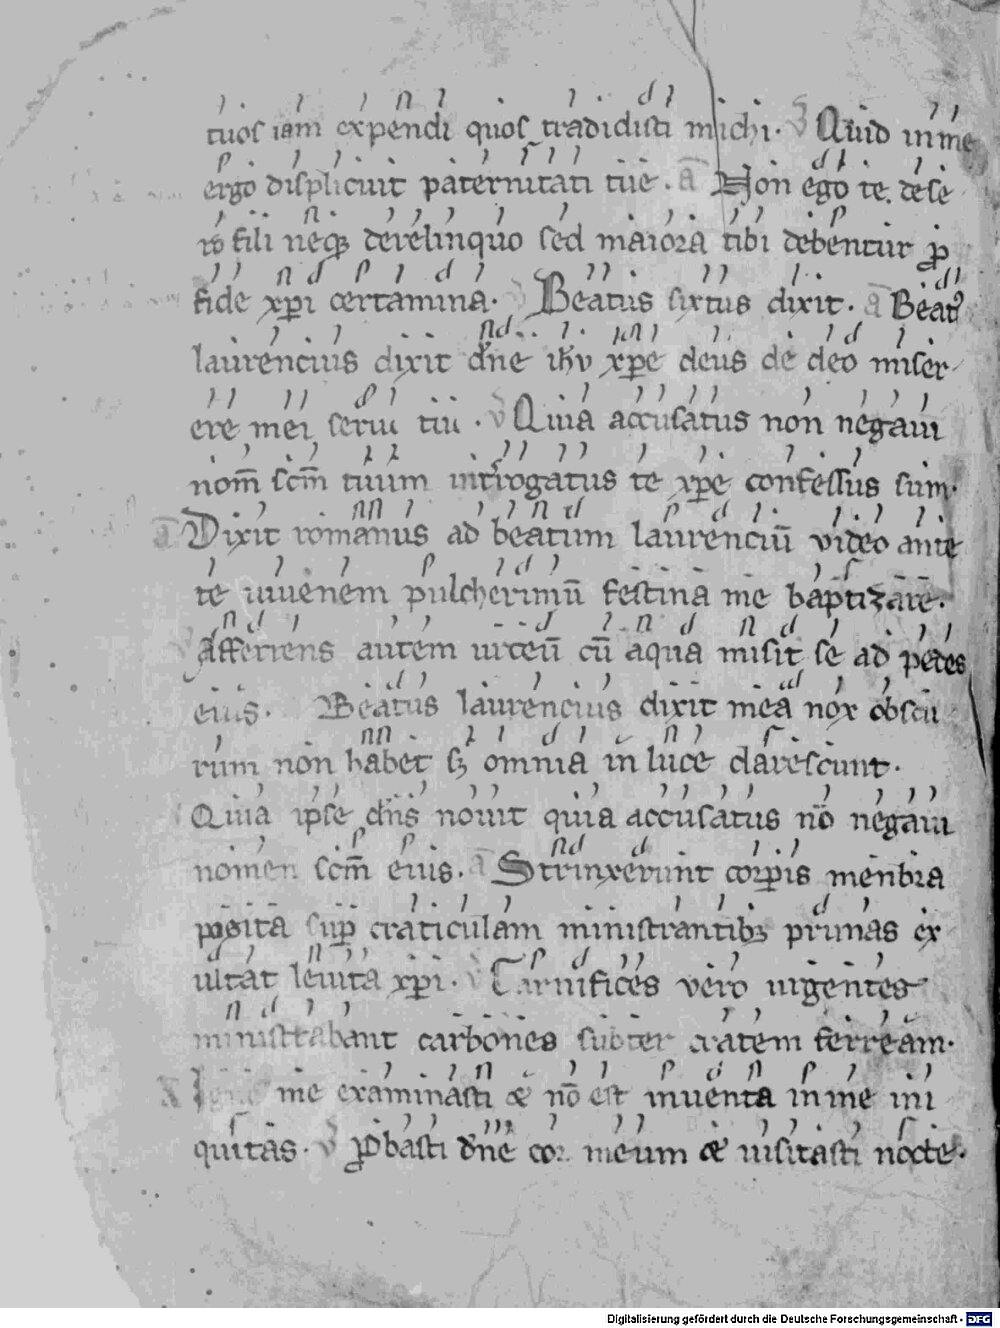 tuos iam expendi quos tradidisti michi. V Quid in me
ergo displicuit paternitati tue. a Non ego te dese
ro fili neq; derelinquo sed maiora tibi debentur ꝓ
fide xp̄i certamina. V Beatus sixtus dixit. a Beatꝰ
laurencius dixit dn̄e ih̄u xp̄e deus de deo miser
ere mei serui tui. V Quia accusatus non negaui
nom̄ scm̄ tuum introgatus te xp̄e confessus sum.
a Dixit romanus ad beatum laurenciū video ante
te iuuenem pulcherimū festina me baptizare.
Afferens autem urceū cū aqua misit se ad pedes
eius. Beatus laurencius dixit mea nox obscu
rum non habet sꝫ omnia in luce clarescunt.
Quia ipse dn̄s nouit quia accusatus nō negaui
nomen scm̄ eius. a Strinxerunt corꝑis menbra
posita suꝑ craticulam ministrantibꝫ prunas ex
ultat leuita xp̄i. V Carnifices vero urgentes
ministrabant carbones subter cratem ferream.
a Igne me examinasti et nō est inuenta in me ini
quitas. V ꝓbasti dn̄e cor meum et uisitasti nocte.
Digitalisierung gefördert durch die Deutsche Forschungsgemeinschaft - DFG